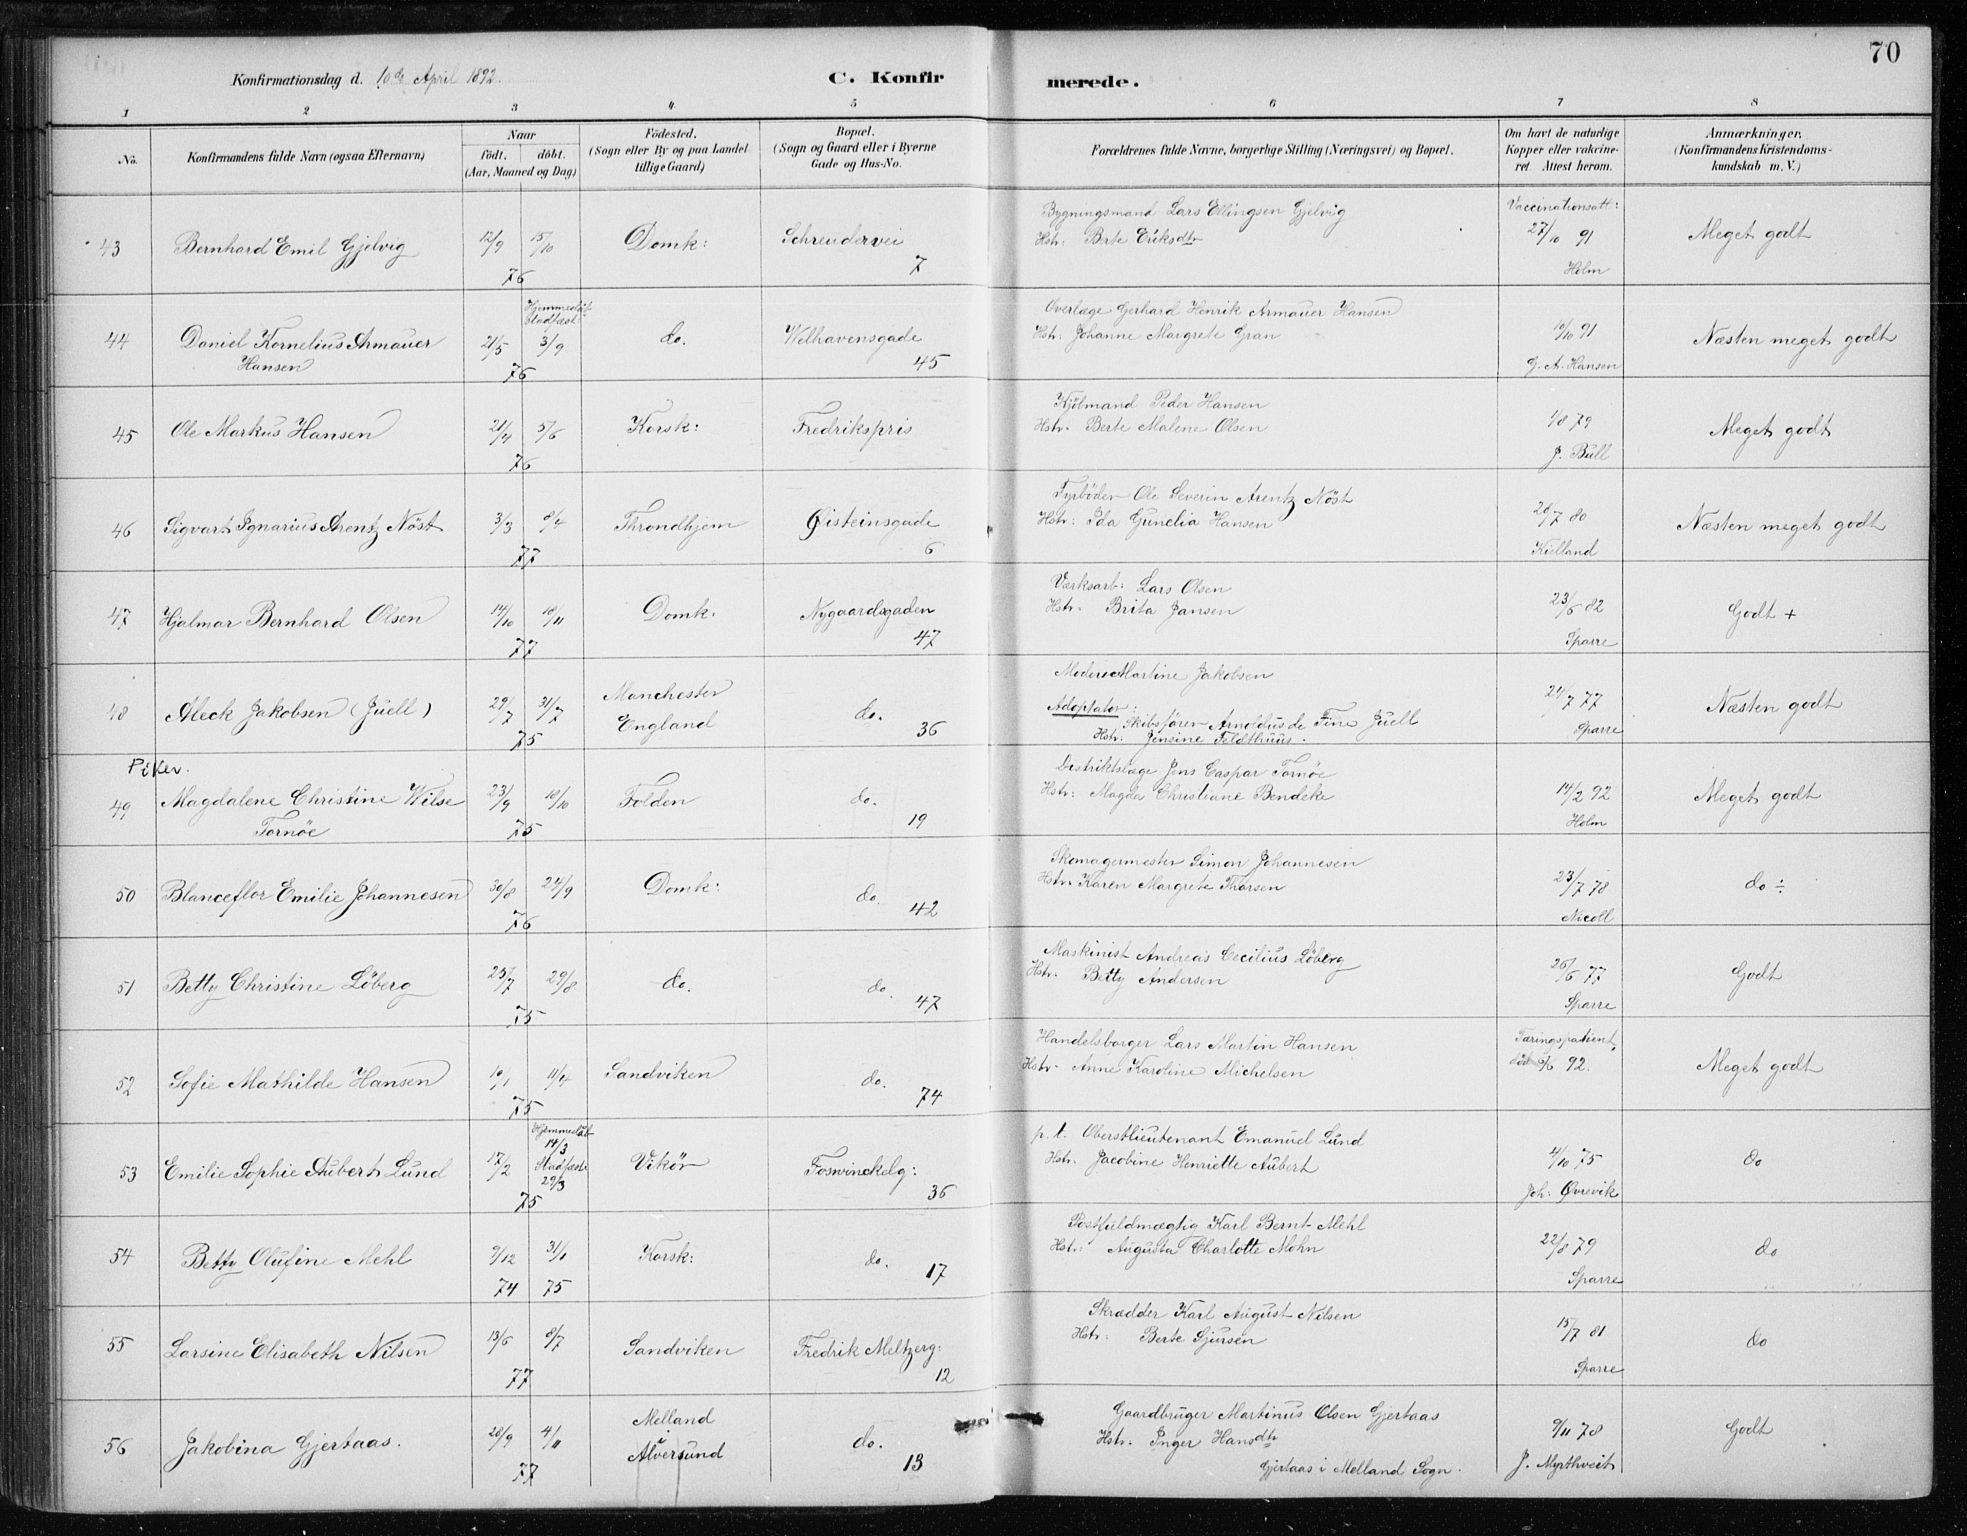 70
Konfirmationsdag d. 10de April 1892.
C. Konfir merede.
1 2 3 4 5 6 7 8
No.
Konfirmandens fulde Navn (ogsaa Efternavn)
Naar
födt. döbt.
(Aar, Maaned og Dag)
Födested.
(Sogn eller By og paa Landet
tillige Gaard)
Bopæl.
(Sogn og Gaard eller i Byerne
Gade og Hus-No.
Forældrenes fulde Navne, borgerlige Stilling (Næringsvei) og Bopæl.
Om havt de naturlige
Kopper eller vakcine-
ret Attest herom.
Anmærkninger.
(Konfirmandens Kristendoms-
kundskab m. V.)
43 Bernhard Emil Gjelvig 12/9 15/10 76 Domk: Schreudervei 7
Bygningsmand Lars Ellingsen Gjelvig
Hstr: Berte Eriksdtr
Vaccinationsatt:
27/10 91
Holm
Meget godt
44 Daniel Kornelius Armauer
Hansen
21/5 Hjemmedöbt
stadfæst:
3/9 76
do. Welhavensgade 45
Overlæge Gerhard Henrik Armauer Hansen
Hstr: Johanne Margrete Gran
10/10 91
G. A. Hansen
Næsten meget godt
45 Ole Markus Hansen 21/4 5/6 76 Korsk: Fredrikspris
Kjölmand Peder Hansen
Hstr. Berte Malene Olsen
1/8 79
J. Bull
Meget godt
46 Sigvart Ignarius Arentz Nöst 3/3 8/4 77 Throndhjem Øisteinsgade 6
Fyrböder Ole Severin Arentz Nöst
Hstr: Ida Gunelia Hansen
28/7 80
Kielland
Næsten meget godt
47 Hjalmar Bernhard Olsen 14/10 18/11 77 Domk: Nygaardsgaden 47
Værksarb: Lars Olsen
Hstr. Brita Jansen
23/6 82
Sparre
Godt +
48 Aleck Jakobsen (Juell) 29/7 31/7 75 Manchester
England
do. 36
Moder: Martine Jakobsen
Adoptator:
Skibsförer Arnoldus de Fine Juell
Hstr: Jensine Feldthuus.
24/7 77
Sparre
Næsten godt
Piker.
49 Magdalene Christine Wilse
Tornöe
23/9 10/10 75 Folden do. 19
Distriktslæge Jens Caspar Tornöe
Hstr: Magda Christiane Bendeke
14/2 92
Holm
Meget godt
50 Blanceflor Emilie Johannesen 30/8 24/9 76 Domk: do. 42
Skomagermester Simon Johannesen
Hstr. Karen Margrete Thorsen
23/7 78
Nicoll
do ÷
51 Betty Christine Löberg 25/7 29/8 75 do. do. 47
Maskinist Andreas Cecilius Löberg
Hstr. Betty Andersen
26/6 77
Sparre
Godt
52 Sofie Mathilde Hansen 10/1 11/4 75 Sandviken do. 74
Handelsborger Lars Martin Hansen
Hstr. Anne Karoline Michelsen
Tæringspatient,
död /6 92.
Meget godt
53 Emilie Sophie Aubert Lund 17/2 Hjemmedöbt
14/3
Stadfæst
29/3
75
Vikör Fosvinckelg: 36
p. t. Oberstlieutenant Emanuel Lund
Hstr. Jacobine Henriette Aubert
4/10 75
Joh: Øvrevik
do
54 Betty Olufine Mehl 9/12 74 31/1 75 Korsk: do. 17
Postfuldmægtig Karl Bernt Mehl
Hstr: Augusta Charlotte Mohn
22/8 79
Sparre
do
55 Larsine Elisabeth Nilsen 13/6 8/7 77 Sandviken Fredrik Meltzerg: 12
Skrædder Karl August Nilsen
Hstr: Berte Sjursen
15/7 81
Sparre
do
56 Jakobina Gjertaas. 28/9 4/11 77 Melland
i
Alversund
do. 13
Gaardbruger Martinus Olsen Gjertaas
Hstr. Inger Hansdtr
Gjertaas i Melland Sogn.
9/11 78
J. Myrthveit
Godt